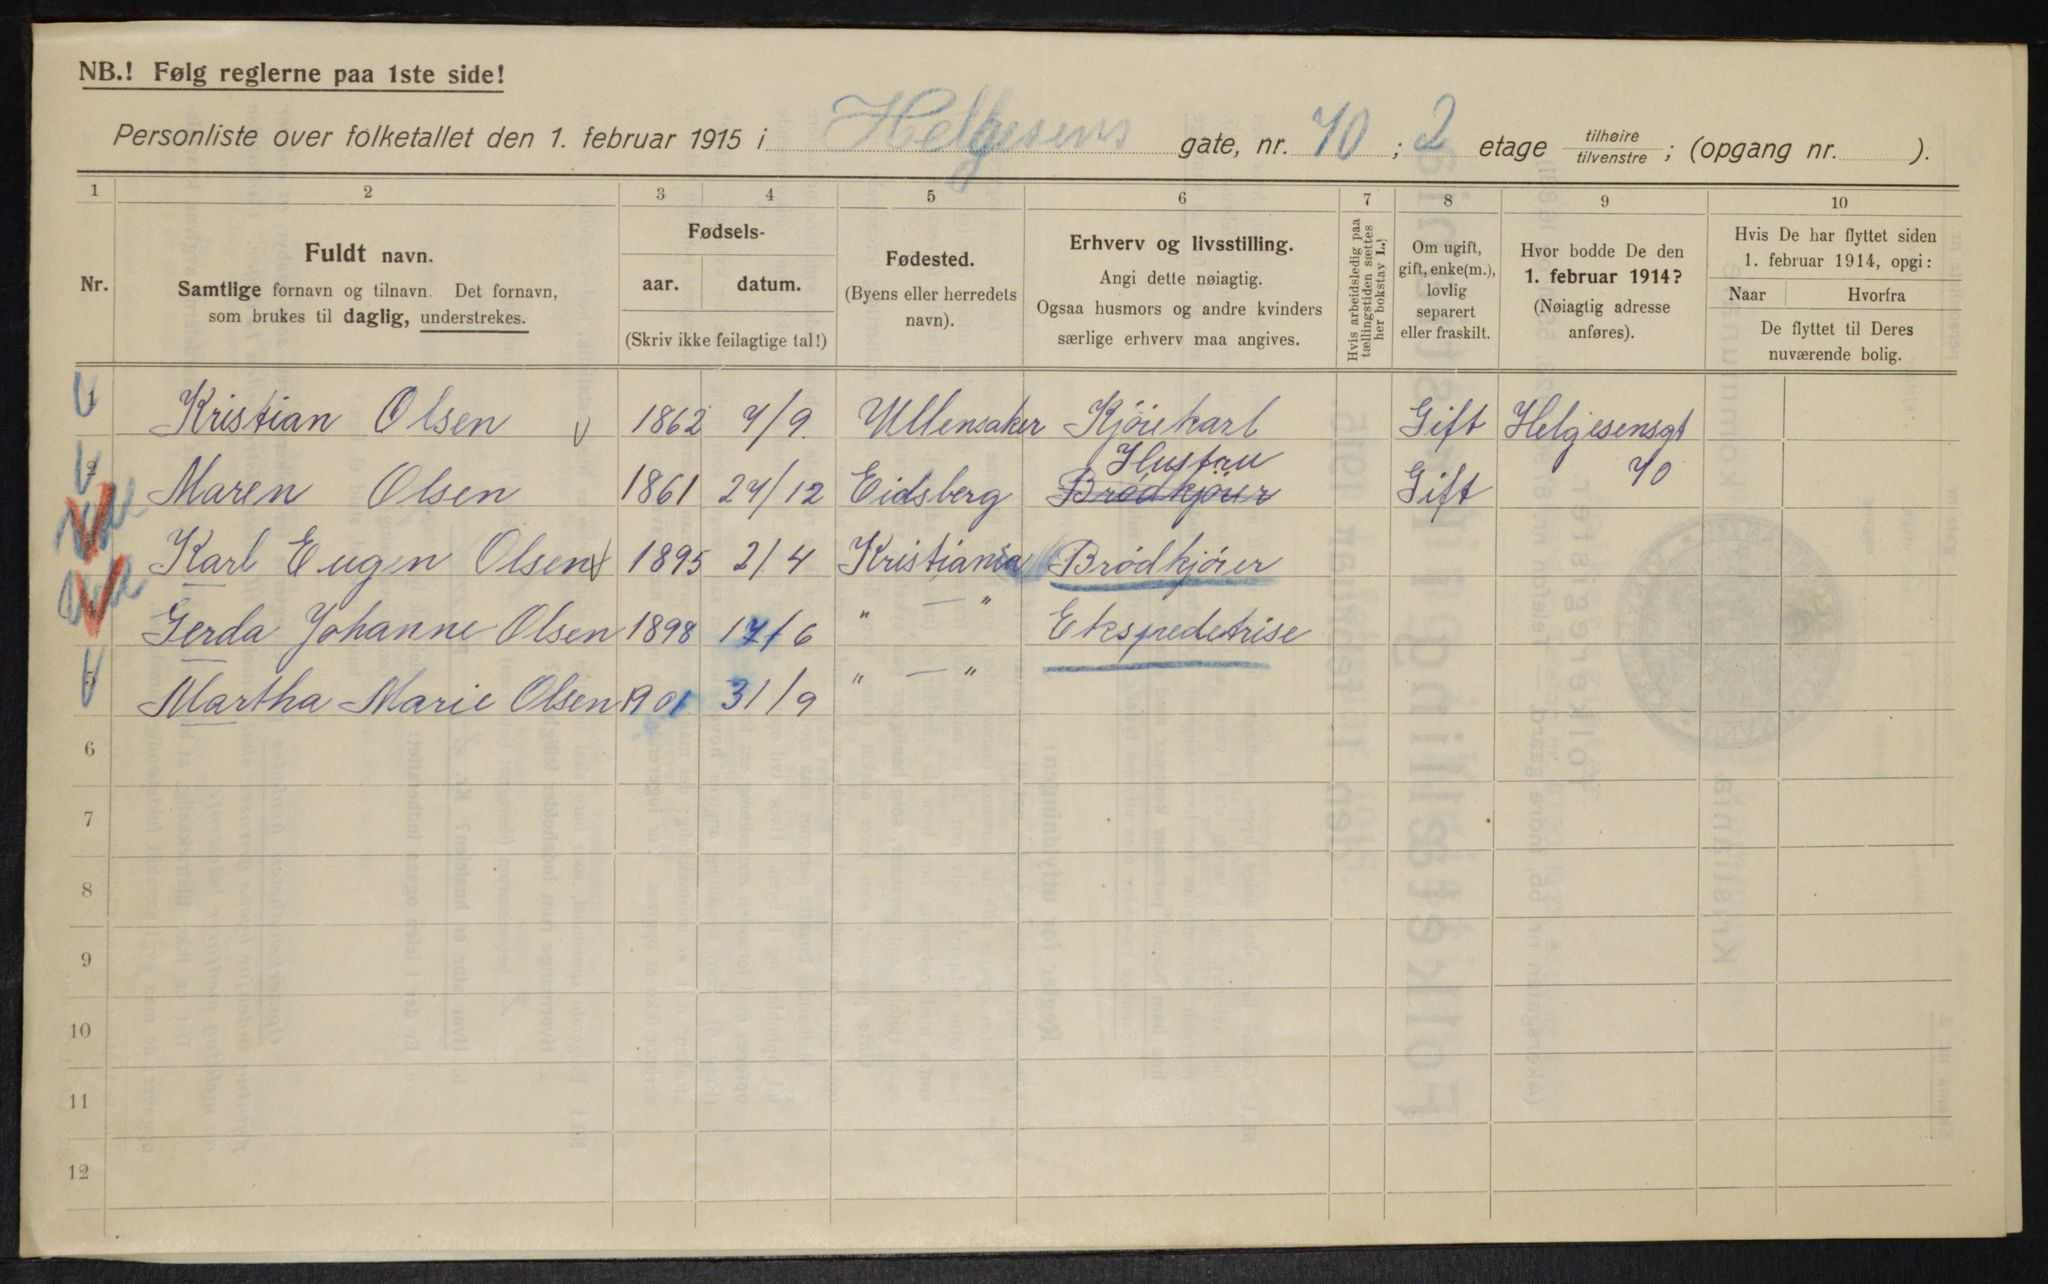 NB.! Følg reglerne paa 1ste side!
Personliste over folketallet den 1. februar 1915 i Helgesens gate, nr. 70 ; 2 etage tilhøire / tilvenstre ; (opgang nr. ).
1 2 3 4 5 6 7 8 9 10
Nr.
Fuldt navn.
Samtlige fornavn og tilnavn. Det fornavn,
som brukes til daglig, understrekes.
Fødsels-
aar. datum.
(Skriv ikke feilagtige tal!)
Fødested.
(Byens eller herredets
navn).
Erhverv og livsstilling.
Angi dette nøiagtig.
Ogsaa husmors og andre kvinders
særlige erhverv maa angives.
Hvis arbeidsledig paa
tællingstiden sættes
her bokstav L.)
Om ugift,
gift, enke(m.),
lovlig
separert
eller fraskilt.
Hvor bodde De den
1. februar 1914?
(Nøiagtig adresse
anføres).
Hvis De har flyttet siden
1. februar 1914, opgi:
Naar Hvorfra
De flyttet til Deres
nuværende bolig.
1 Kristian Olsen 1862 7/9. Ullensaker Kjørekarl Gift Helgesensgt
Hustru
2 Maren Olsen 1861 27/12 Eidsberg Brødkjører Gift 70
Karl Eugen Olsen 1895 2/4 Kristiania Brødkjører
Gerda Johanne Olsen 1898 17/6 " — " Ekspedetrise
5 Martha Marie Olsen 1901 31/9 " — "
6
7
8
9
10
11
12